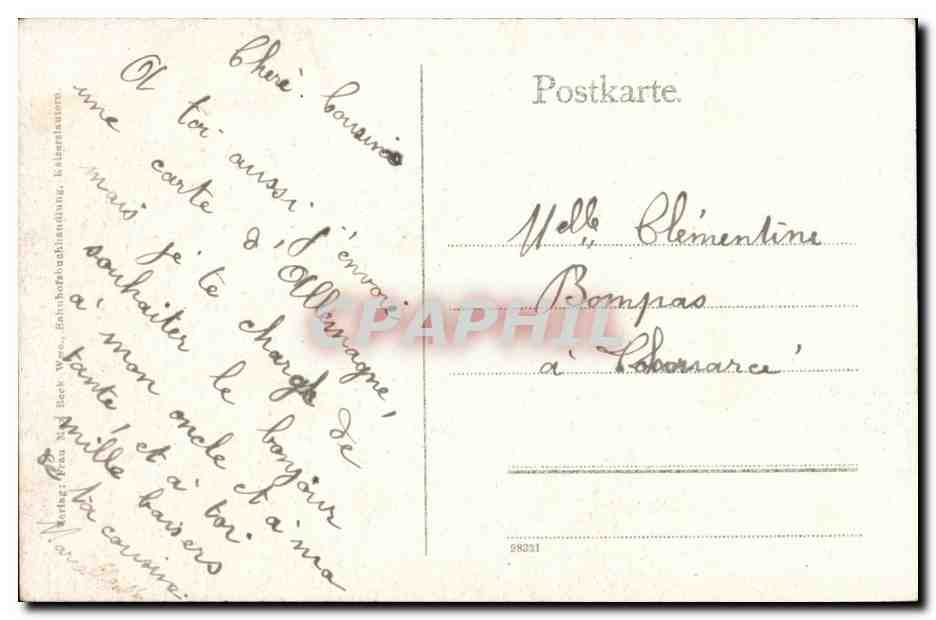 Cherè Cousine
A toi aussi j'envoie
une carte d'Allemagne,
mais je te charge de
souhaiter le bonjour
à mon oncle et à ma
tante, et à toi.
mille baisers
de ta cousine.
Postkarte.
Melle Clémentine
Bompas
à
98331
Verlag: Frau Max Beck Wwe., Bahnhofsbuchhandlung, Kaiserslautern.
CPAPHIL